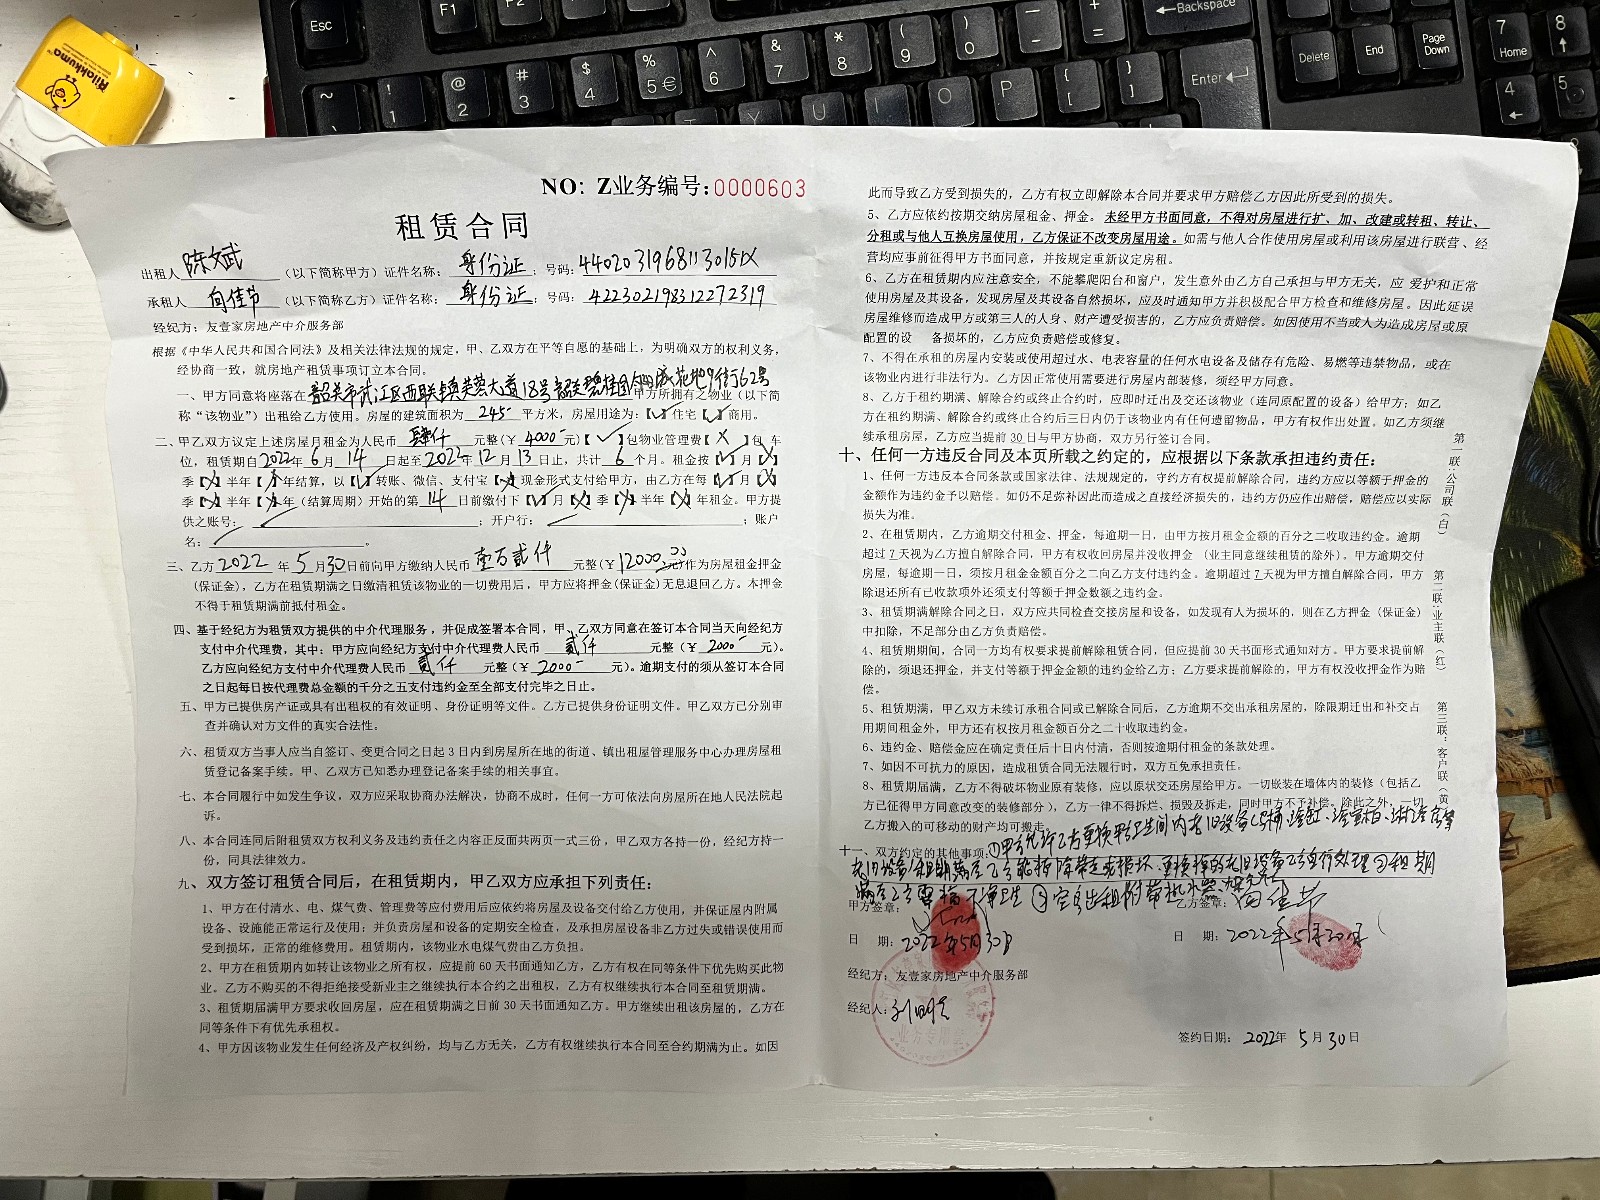 Rilakkuma
Esc
F1
F2
Backspace
Delete
End
Page Down
7 Home
8
Enter
4
5
NO: Z业务编号:0000603
租赁合同
出租人 陈文武 （以下简称甲方）证件名称： 身份证 ；号码：44020319681130151X
承租人 向佳节 （以下简称乙方）证件名称： 身份证 ；号码：422302198312272319
经纪方：友壹家房地产中介服务部
根据《中华人民共和国合同法》及相关法律法规的规定，甲、乙双方在平等自愿的基础上，为明确双方的权利义务，
经协商一致，就房地产租赁事项订立本合同。
一、甲方同意将座落在 韶关市武江区西联镇芙蓉大道18号韶关碧桂园 花地9街62号 甲方所拥有之物业（以下简
称“该物业”）出租给乙方使用。房屋的建筑面积为 245 平方米，房屋用途为：【✓】住宅【✓】商用。
二、甲乙双方议定上述房屋月租金为人民币 肆仟 元整(￥ 4000 元)【✓】包物业管理费【X】包 车
位，租赁期自2022年 6月 14 日起至2022年12月13日止，共计 6 个月。租金按【✓】月【X】
季【X】半年【X】年结算，以【✓】转账、微信、支付宝【✓】现金形式支付给甲方，由乙方在每【✓】月【X】
季【X】半年【X】年（结算周期）开始的第 14 日前缴付下【✓】月【X】季【X】半年【X】年租金。甲方提
供之账号： ；开户行： ；账户
名： 。
三、乙方 2022 年 5 月30日前向甲方缴纳人民币 壹万贰仟 元整(￥12000.00元)作为房屋租金押金
(保证金)，乙方在租赁期满之日缴清租赁该物业的一切费用后，甲方应将押金(保证金)无息退回乙方。本押金
不得于租赁期满前抵付租金。
四、基于经纪方为租赁双方提供的中介代理服务，并促成签署本合同，甲、乙双方同意在签订本合同当天向经纪方
支付中介代理费，其中：甲方应向经纪方支付中介代理费人民币 贰仟 元整（￥ 2000 元）。
乙方应向经纪方支付中介代理费人民币 贰仟 元整（￥ 2000 元）。逾期支付的须从签订本合同
之日起每日按代理费总金额的千分之五支付违约金至全部支付完毕之日止。
五、甲方已提供房产证或具有出租权的有效证明、身份证明等文件。乙方已提供身份证明文件。甲乙双方已分别审
查并确认对方文件的真实合法性。
六、租赁双方当事人应当自签订、变更合同之日起 3 日内到房屋所在地的街道、镇出租屋管理服务中心办理房屋租
赁登记备案手续。甲、乙双方已知悉办理登记备案手续的相关事宜。
七、本合同履行中如发生争议，双方应采取协商办法解决，协商不成时，任何一方可依法向房屋所在地人民法院起
诉。
八、本合同连同后附租赁双方权利义务及违约责任之内容正反面共两页一式三份，甲乙双方各持一份，经纪方持一
份，同具法律效力。
九、双方签订租赁合同后，在租赁期内，甲乙双方应承担下列责任：
1、甲方在付清水、电、煤气费、管理费等应付费用后应依约将房屋及设备交付给乙方使用，并保证屋内附属
设备、设施能正常运行及使用；并负责房屋和设备的定期安全检查，及承担房屋设备非乙方过失或错误使用而
受到损坏，正常的维修费用。租赁期内，该物业水电煤气费由乙方负担。
2、甲方在租赁期内如转让该物业之所有权，应提前 60 天书面通知乙方，乙方有权在同等条件下优先购买此物
业。乙方不购买的不得拒绝接受新业主之继续执行本合约之出租权，乙方有权继续执行本合同至租赁期满。
3、租赁期届满甲方要求收回房屋，应在租赁期满之日前 30 天书面通知乙方。甲方继续出租该房屋的，乙方在
同等条件下有优先承租权。
4、甲方因该物业发生任何经济及产权纠纷，均与乙方无关，乙方有权继续执行本合同至合约期满为止。如因
此而导致乙方受到损失的，乙方有权立即解除本合同并要求甲方赔偿乙方因此所受到的损失。
5、乙方应依约按期交纳房屋租金、押金。未经甲方书面同意，不得对房屋进行扩、加、改建或转租、转让、
分租或与他人互换房屋使用，乙方保证不改变房屋用途。如需与他人合作使用房屋或利用该房屋进行联营、经
营均应事前征得甲方书面同意，并按规定重新议定房租。
6、乙方在租赁期内应注意安全，不能攀爬阳台和窗户，发生意外由乙方自己承担与甲方无关，应 爱护和正常
使用房屋及其设备，发现房屋及其设备自然损坏，应及时通知甲方并积极配合甲方检查和维修房屋。因此延误
房屋维修而造成甲方或第三人的人身、财产遭受损害的，乙方应负责赔偿。如因使用不当或人为造成房屋或原
配置的设 备损坏的，乙方应负责赔偿或修复。
7、不得在承租的房屋内安装或使用超过水、电表容量的任何水电设备及储存有危险、易燃等违禁物品，或在
该物业内进行非法行为。乙方因正常使用需要进行房屋内部装修，须经甲方同意。
8、乙方于租约期满、解除合约或终止合约时，应即时迁出及交还该物业（连同原配置的设备）给甲方；如乙
方在租约期满、解除合约或终止合约后三日内仍于该物业内有任何遗留物品，甲方有权作出处置。如乙方须继
续承租房屋，乙方应当提前 30 日与甲方协商，双方另行签订合同。
十、任何一方违反合同及本页所载之约定的，应根据以下条款承担违约责任：
1、任何一方违反本合同条款或国家法律、法规规定的，守约方有权提前解除合同，违约方应以等额于押金的
金额作为违约金予以赔偿。如仍不足弥补因此而造成之直接经济损失的，违约方仍应作出赔偿，赔偿应以实际
损失为准。
2、在租赁期内，乙方逾期交付租金、押金，每逾期一日，由甲方按月租金金额的百分之二收取违约金。逾期
超过 7 天视为乙方擅自解除合同，甲方有权收回房屋并没收押金 （业主同意继续租赁的除外）。甲方逾期交付
房屋，每逾期一日，须按月租金金额百分之二向乙方支付违约金。逾期超过 7 天视为甲方擅自解除合同，甲方
除退还所有已收款项外还须支付等额于押金数额之违约金。
3、租赁期满解除合同之日，双方应共同检查交接房屋和设备，如发现有人为损坏的，则在乙方押金（保证金）
中扣除，不足部分由乙方负责赔偿。
4、租赁期期间，合同一方均有权要求提前解除租赁合同，但应提前 30 天书面形式通知对方。甲方要求提前解
除的，须退还押金，并支付等额于押金金额的违约金给乙方；乙方要求提前解除的，甲方有权没收押金作为赔
偿。
5、租赁期满，甲甲双方未续订承租合同或已解除合同后，乙方逾期不交出承租房屋的，除限期迁出和补交占
用期间租金外，甲方还有权按月租金额百分之二十收取违约金。
6、违约金、赔偿金应在确定责任后十日内付清，否则按逾期付租金的条款处理。
7、如因不可抗力的原因，造成租赁合同无法履行时，双方互免承担责任。
8、租赁期届满，乙方不得破坏物业原有装修，应以原状交还房屋给甲方。一切嵌装在墙体内的装修（包括乙
方已征得甲方同意改变的装修部分），乙方一律不得拆烂、损毁及拆走，同时甲方不予补偿。除此之外，一切
乙方搬入的可移动的财产均可搬走。
十一、双方约定的其他事项：①甲方允许乙方更换 卫生间内老旧设备
老旧设备 租期满后乙方 拆除带走或损坏，更换掉的老旧设备乙方自行处理 ②租期
满后乙方 ③
甲方签章：
乙方签章：向佳节
日 期：2022年5月30日
日 期：2022年5月30日
经纪方：友壹家房地产中介服务部
经纪人：
业务专用章
签约日期： 2022年 5月30日
第一联：公司联（白）
第二联：业主联（红）
第三联：客户联（黄）